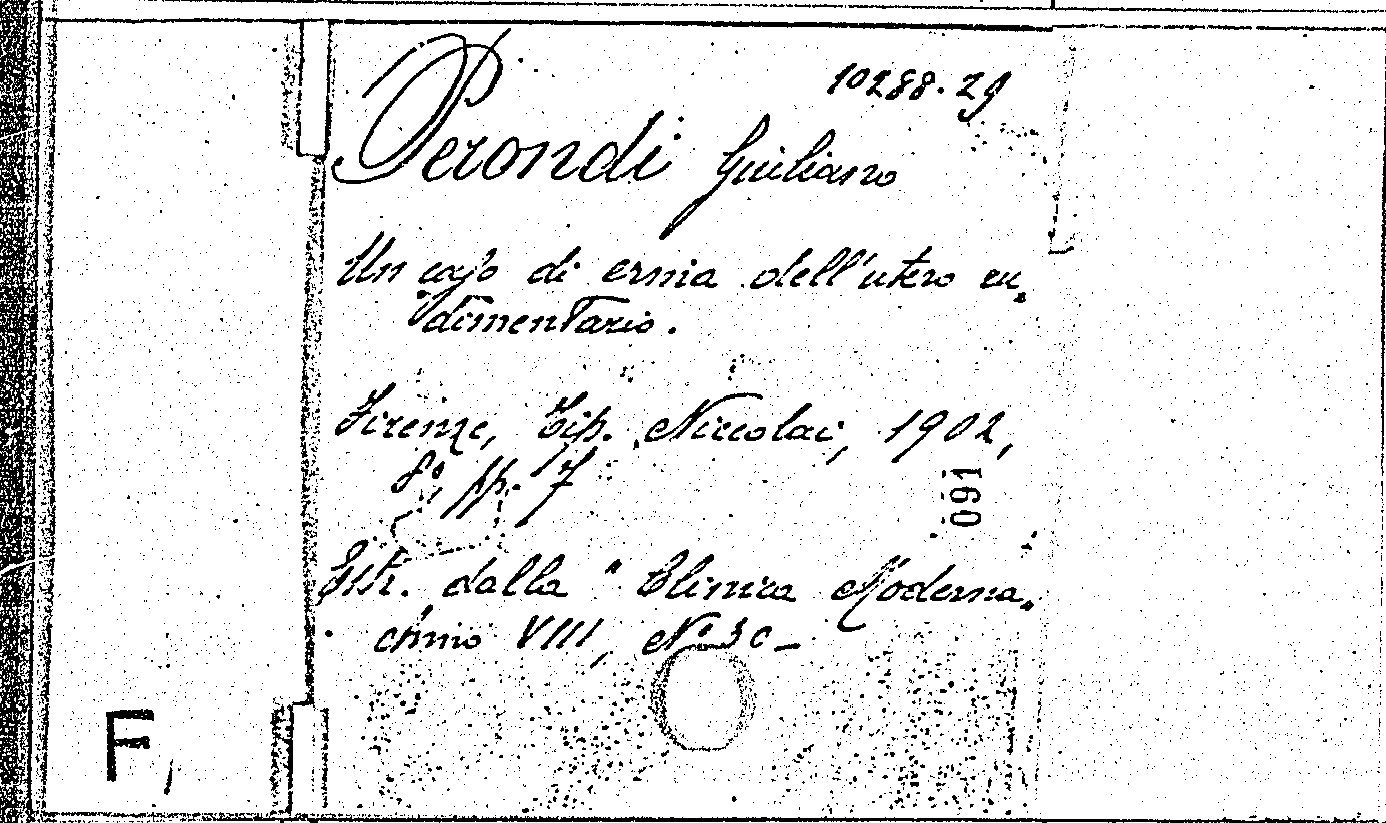 10288.29
Perondi Giuliano
Un caso di ernia dell'utero ru-
dimentario.
Firenze, Tip. Niccolai, 1902,
8º, pp. 7
091
Estr. dalla "Clinica Moderna"
Anno VIII, Nº 30-
F